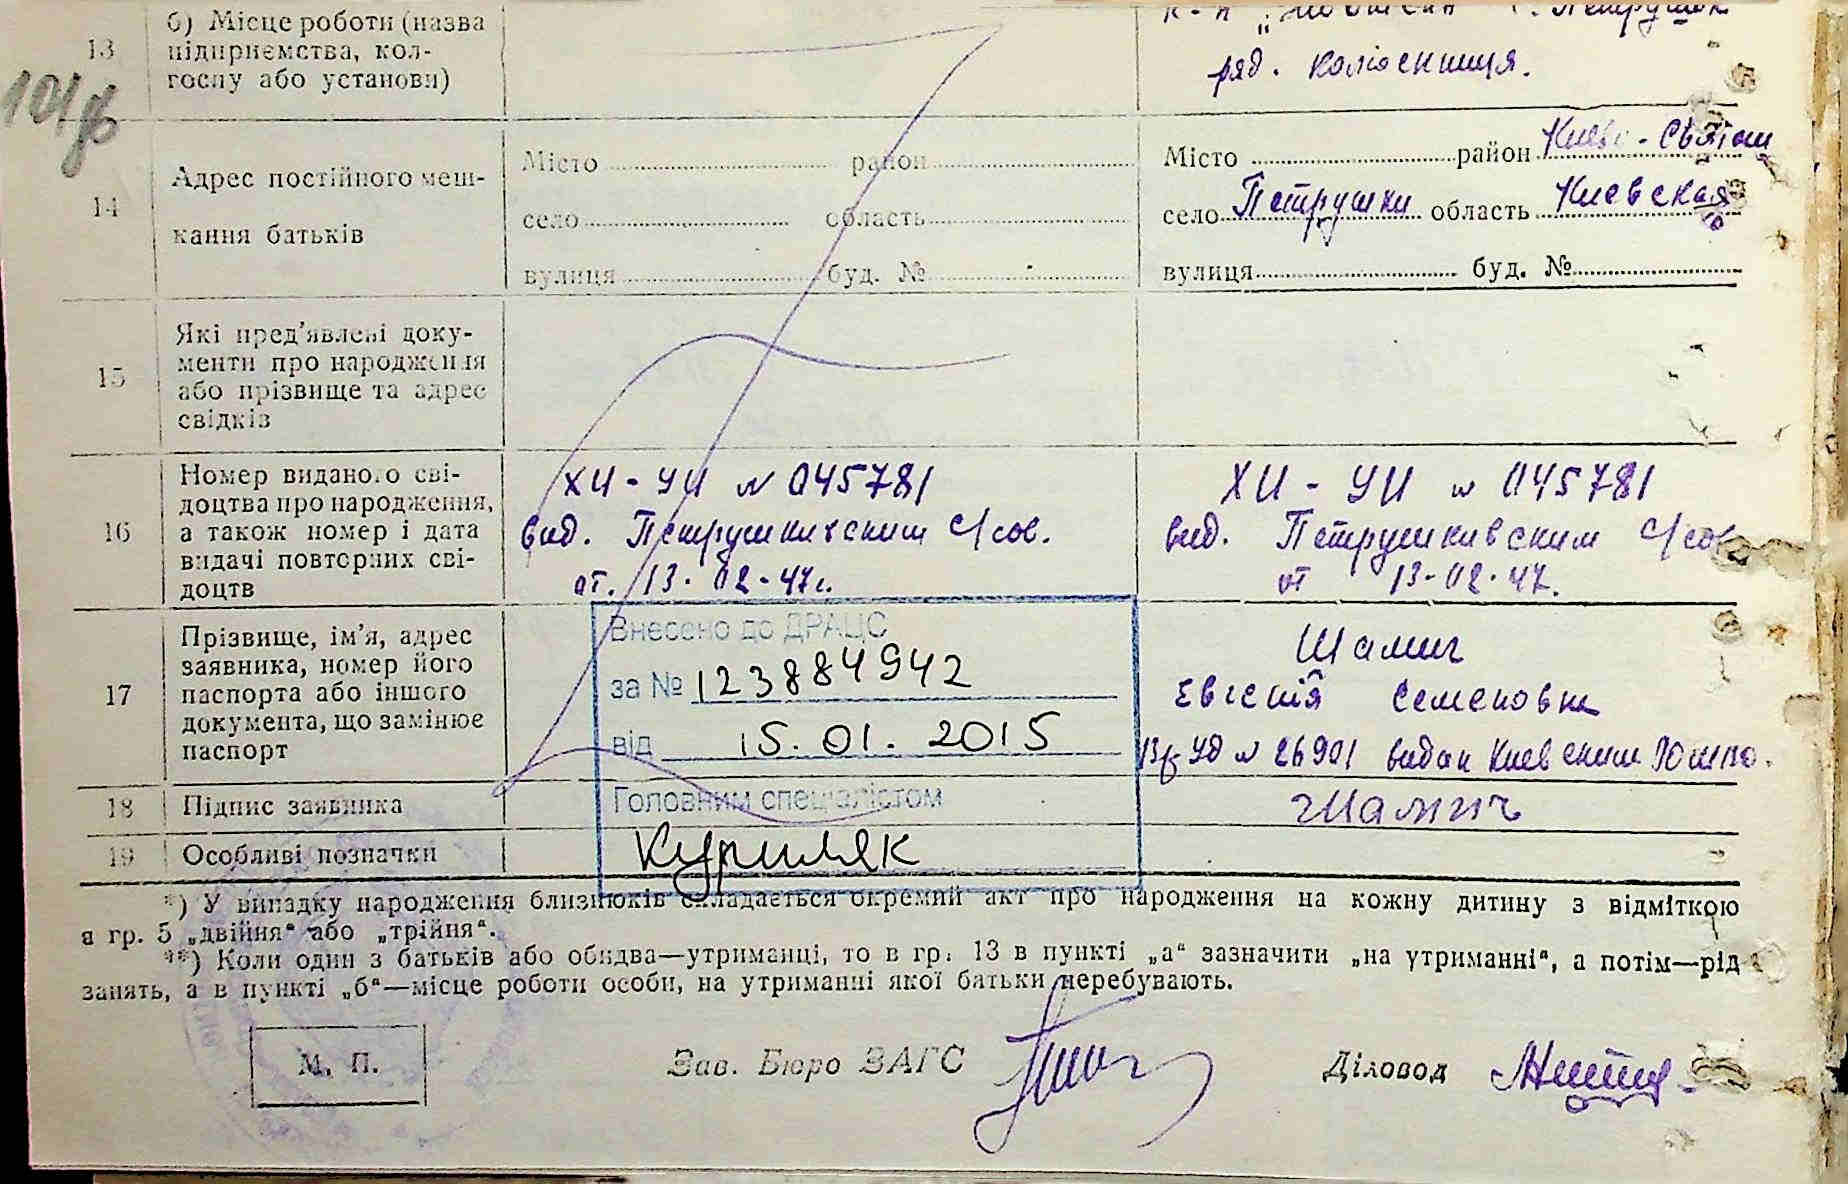 101
13
б) Місце роботи (назва
підприємства, кол-
госпу або установи)
ряд. колгоспниця.
14
Адрес постійного меш-
кання батьків
Місто район
село область
вулиця буд. №
Місто район Киево-Святош
село Петрушки область Киевская
вулиця буд. №
15
Які пред'явлені доку-
менти про народження
або прізвище та адрес
свідків
16
Номер виданого сві-
доцтва про народження,
а також номер і дата
видачі повторних сві-
доцтв
ХИ-УИ № 045781
вид. Петрушкивским с/сов.
от. 13-02-47г.
ХИ-УИ № 045781
вид. Петрушкивским с/сов
от 13-02-47.
17
Прізвище, ім'я, адрес
заявника, номер його
паспорта або іншого
документа, що замінює
паспорт
Внесено до ДРАЦС
за № 123884942
від 15.01.2015
Головним спеціалістом
Куриляк
Шамич
Евгенія Семеновна
уд № 26901 видан Киевским
18
Підпис заявника
Шамич
19
Особливі позначки
*) У випадку народження близнюків складається окремий акт про народження на кожну дитину з відміткою
в гр. 5 „двійня“ або „трійня“.
**) Коли один з батьків або обидва—утриманці, то в гр. 13 в пункті „а“ зазначити „на утриманні“, а потім—рід
занять, а в пункті „б“—місце роботи особи, на утриманні якої батьки перебувають.
М. П.
Зав. Бюро ЗАГС
Діловод